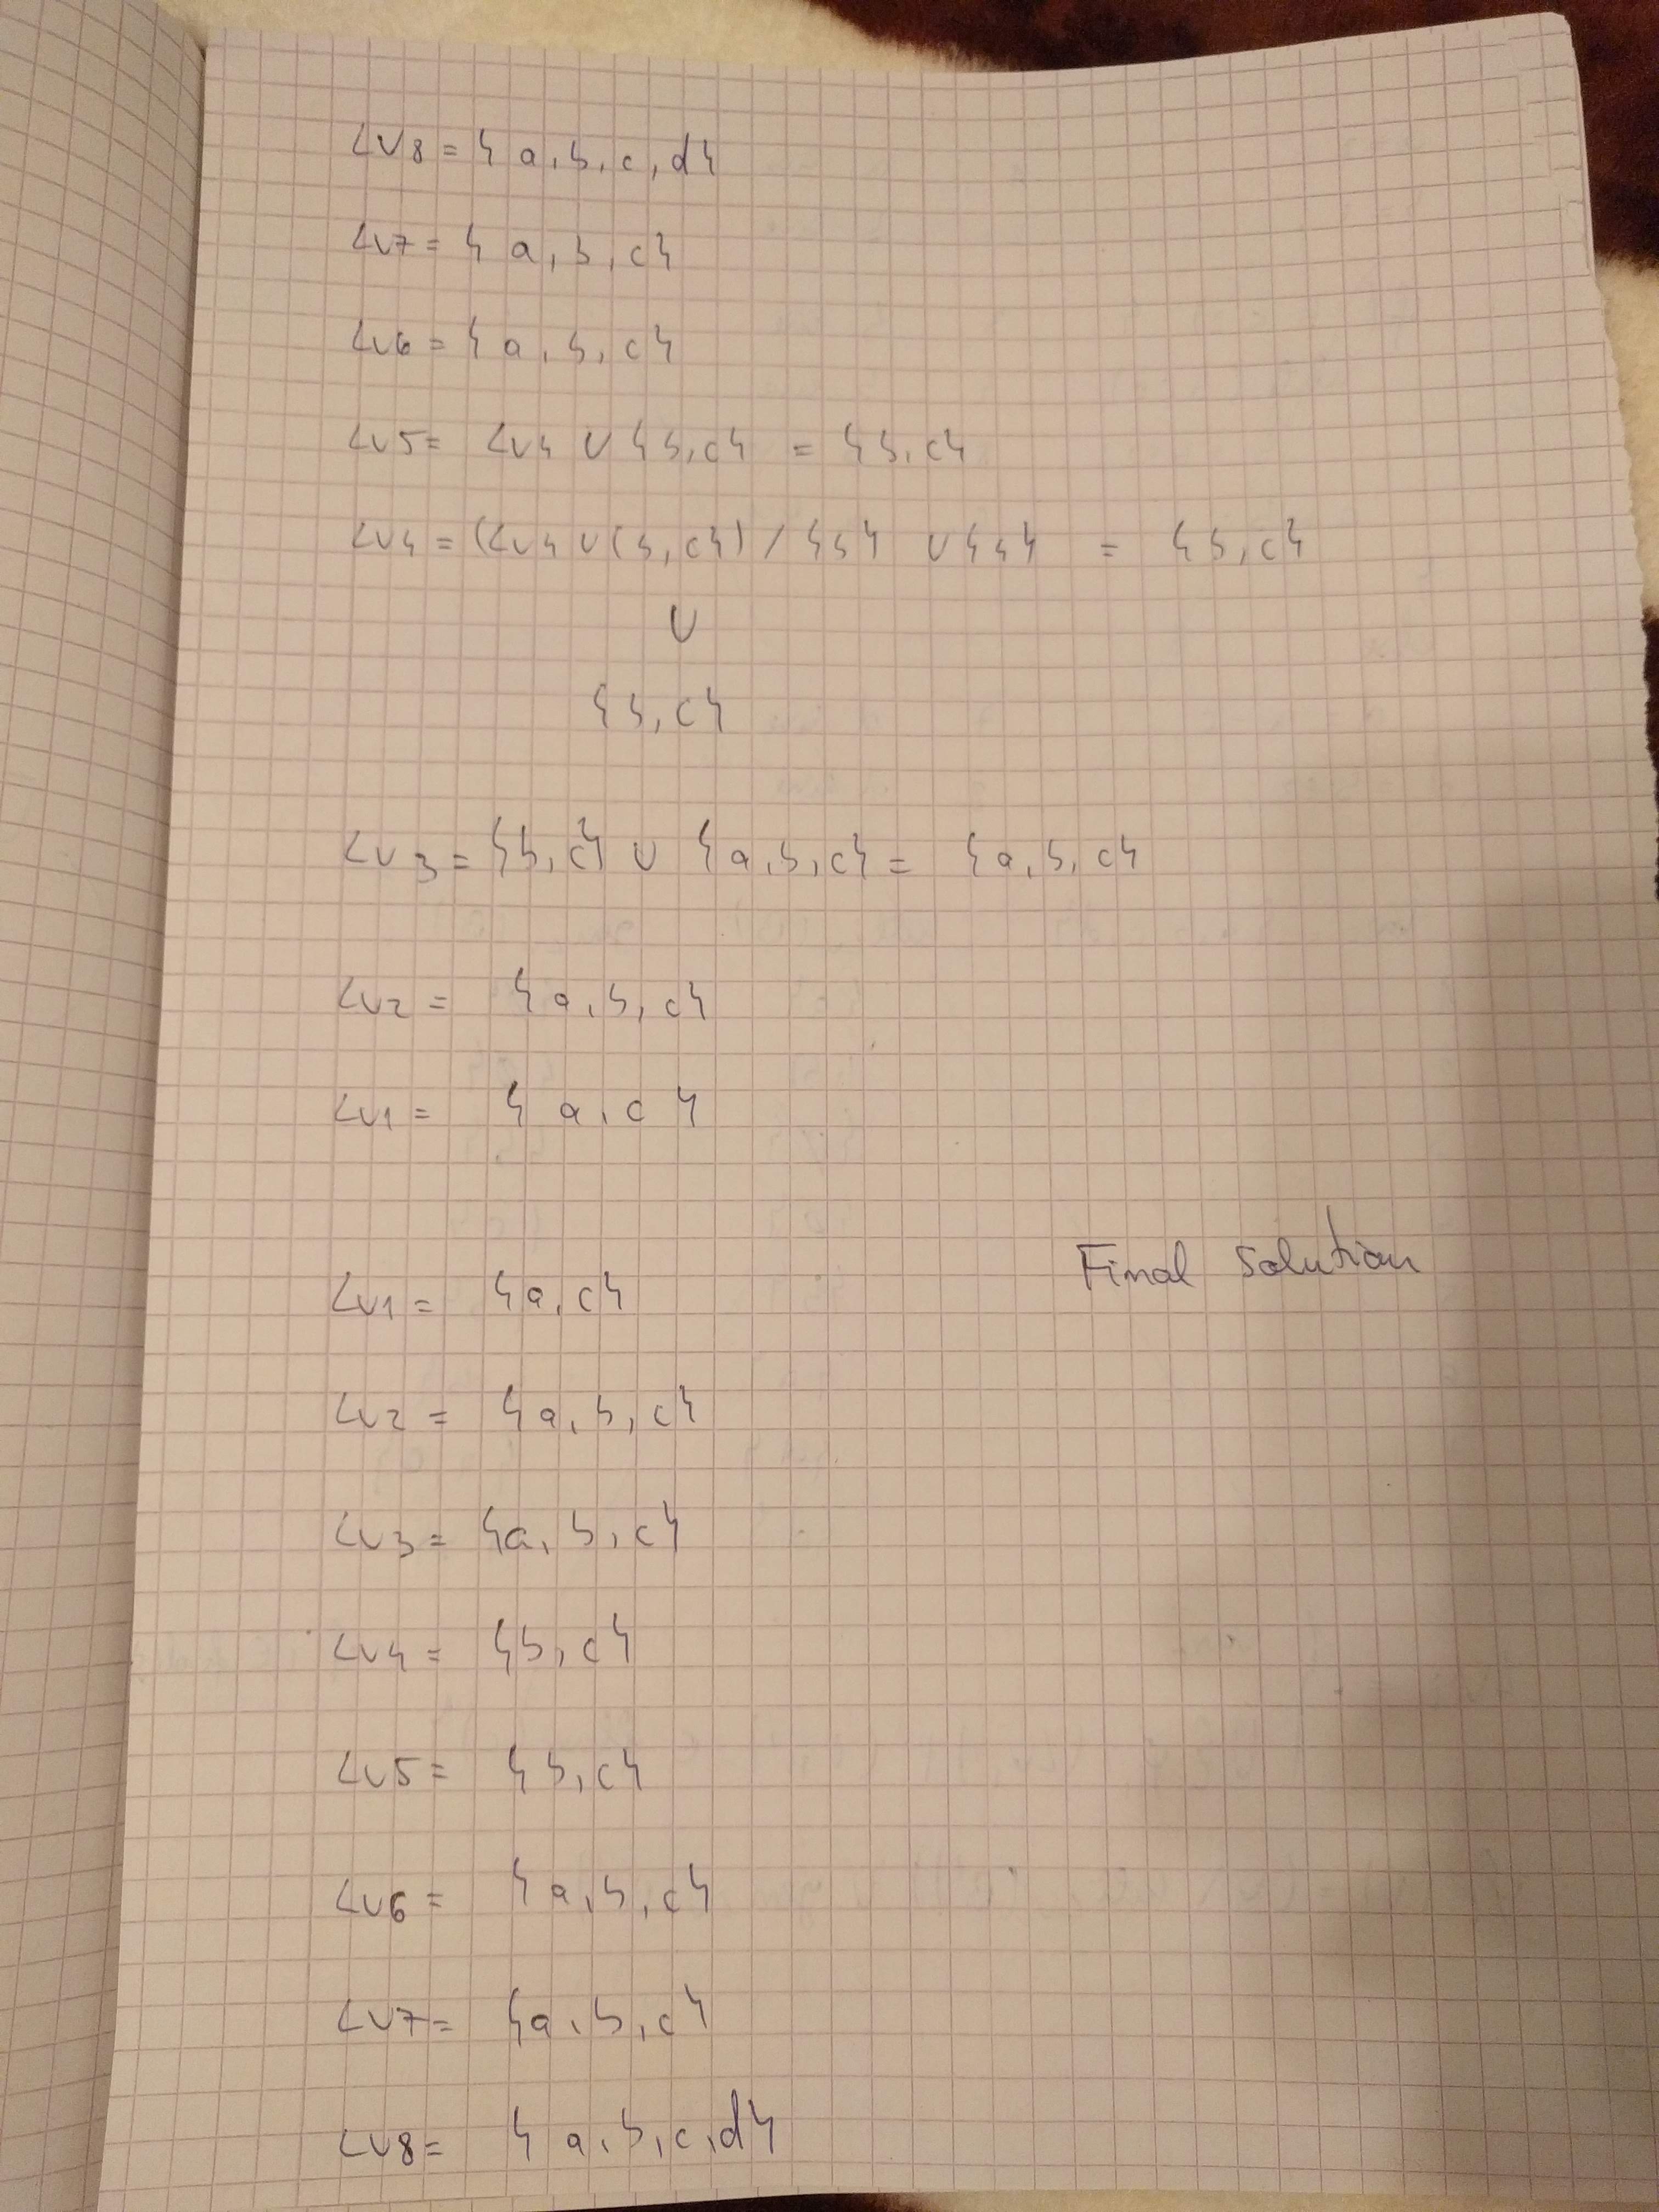 LV8 = { a, b, c, d}
LV7 = { a, b, c}
LV6 = { a, b, c}
LV5 = LV4 ∪ {b, c} = {b, c}
LV4 = (LV4 ∪ (b, c}) / {b} ∪ {b} = {b, c}
∪
{b, c}
LV3 = {b, c} ∪ {a, b, c} = {a, b, c}
LV2 = {a, b, c}
LV1 = { a, c }
Final solution
LV1 = {a, c}
LV2 = {a, b, c}
LV3 = {a, b, c}
LV4 = {b, c}
LV5 = {b, c}
LV6 = {a, b, c}
LV7 = {a, b, c}
LV8 = { a, b, c, d}